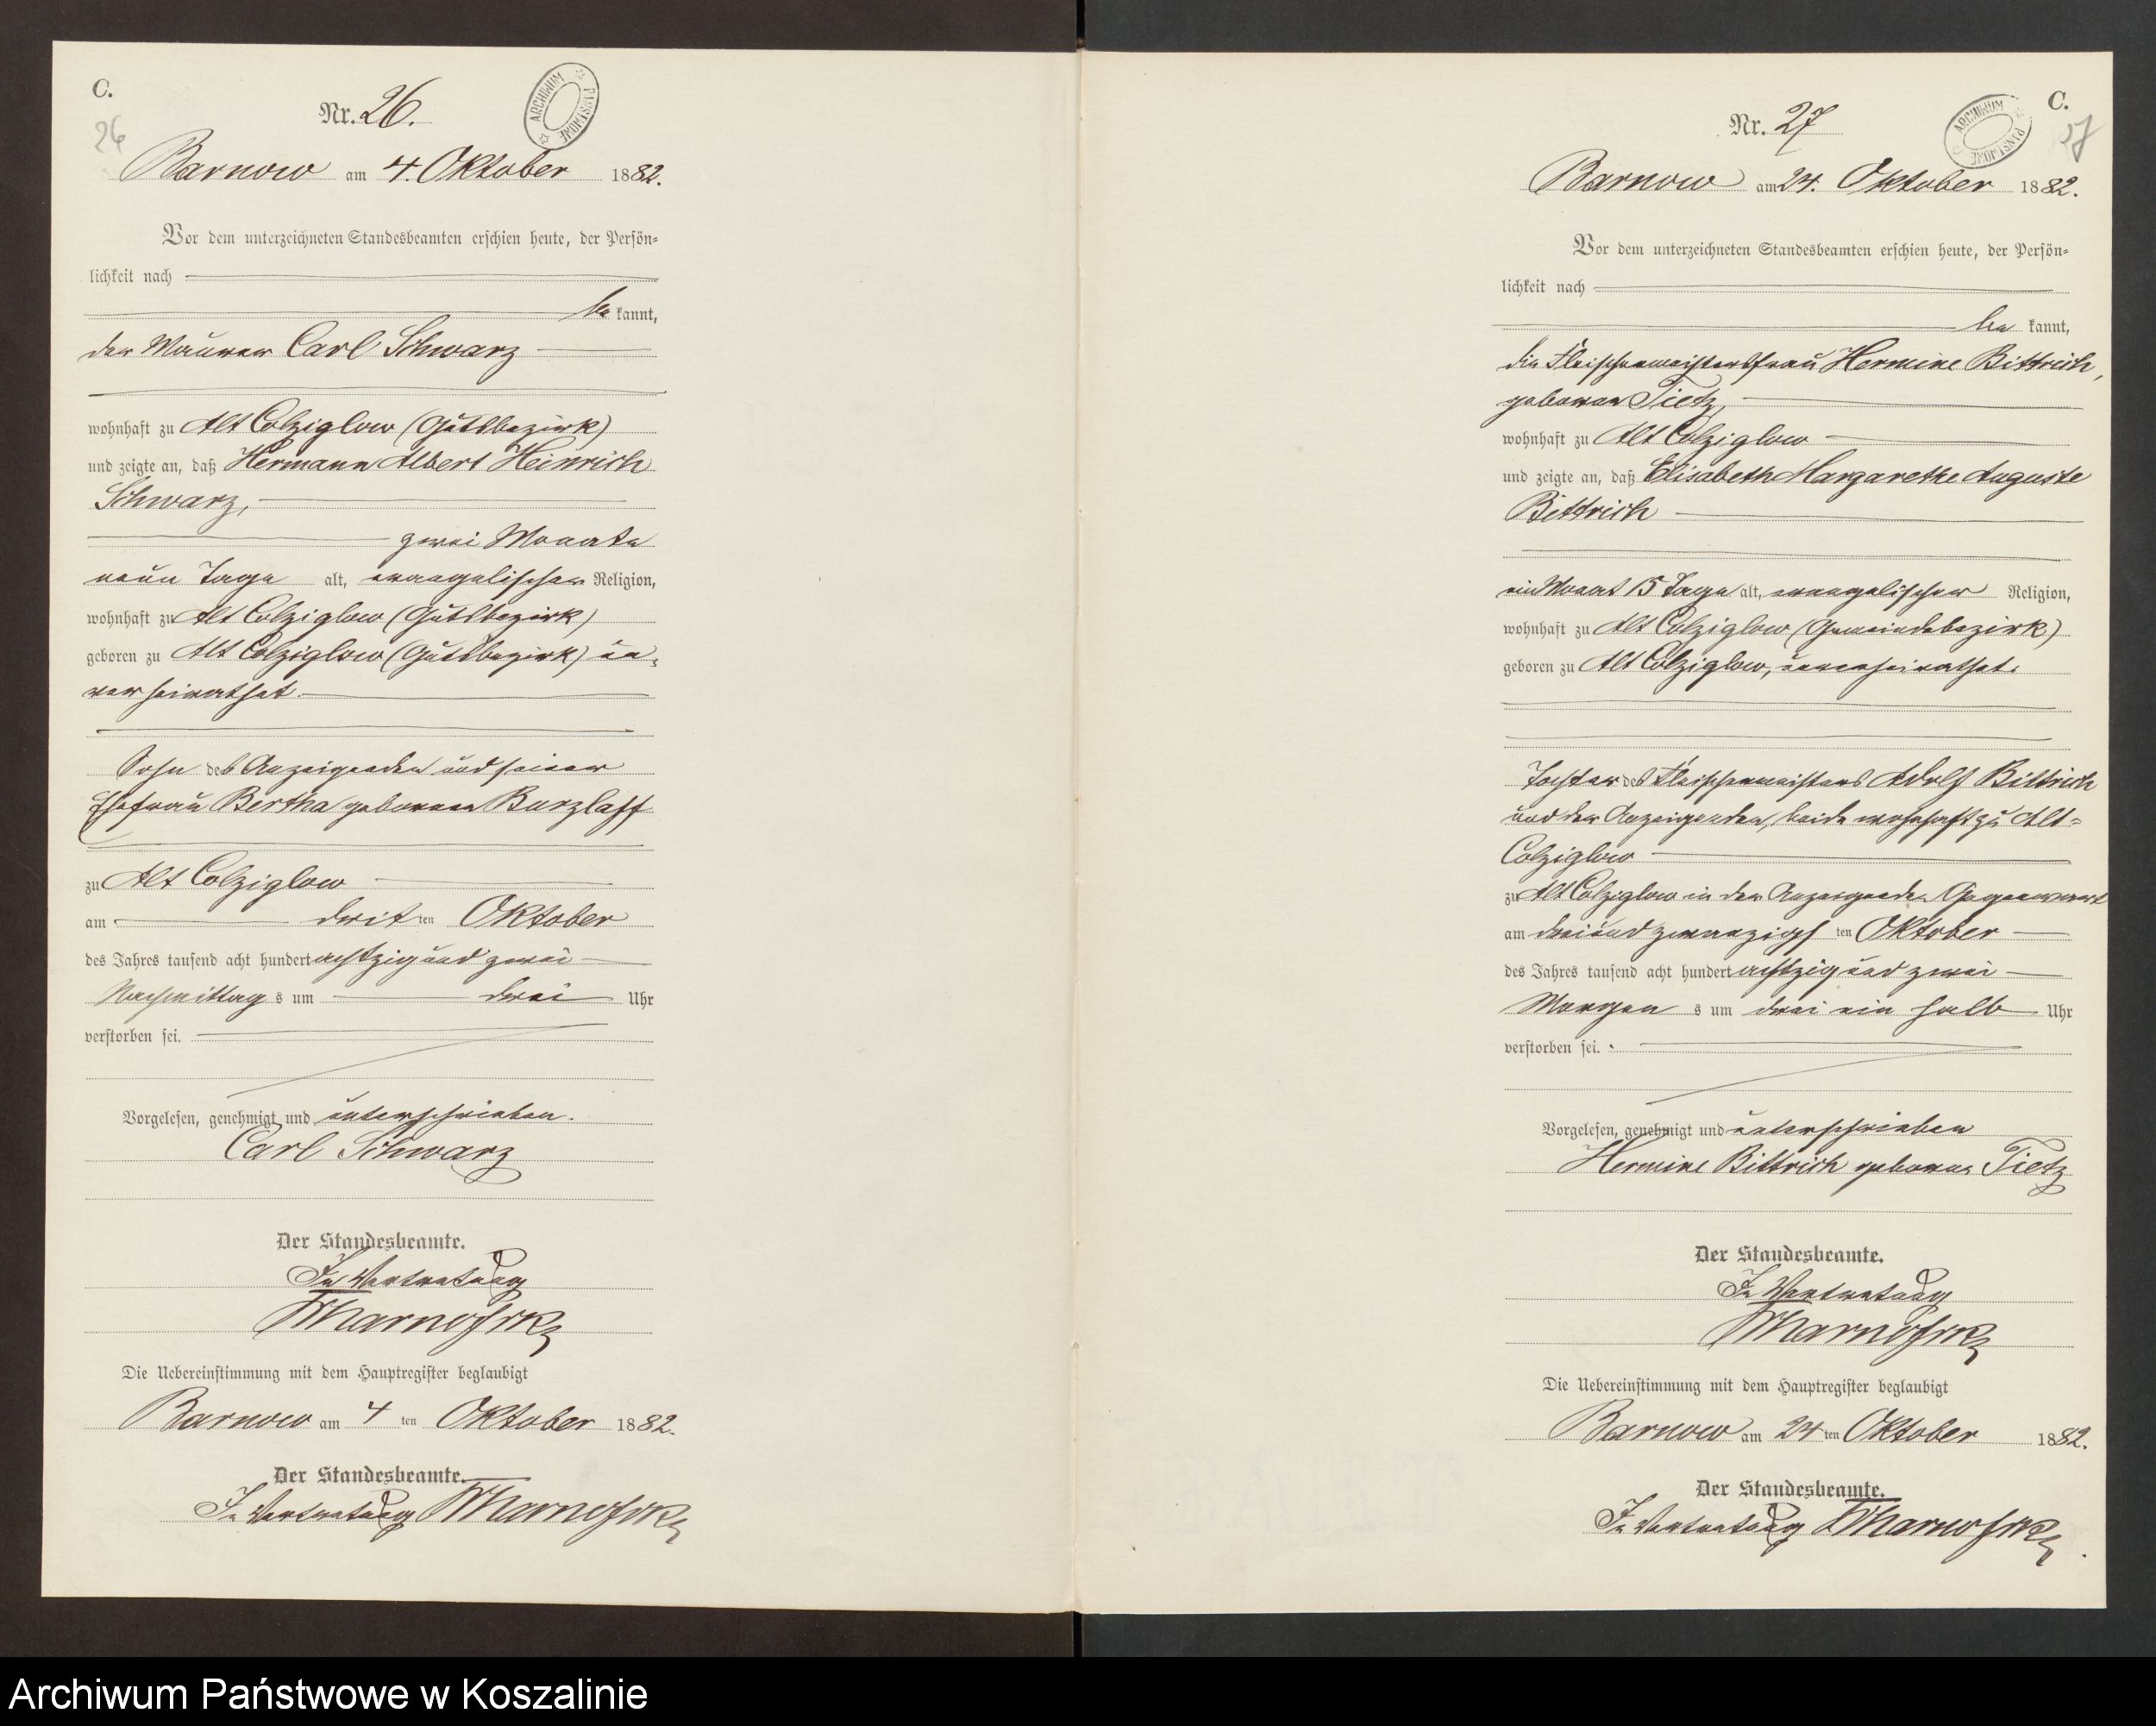 C.
Nr. 26.
ARCHIWUM PAŃSTWOWE
26
Barnow am 4. Oktober 1882.
Vor dem unterzeichneten Standesbeamten erschien heute, der Persön-
lichkeit nach
be kannt,
der Maurer Carl Schwarz
wohnhaft zu Alt Colziglow (Gutsbezirk)
und zeigte an, daß Hermann Albert Heinrich
Schwarz,
zwei Monate
neun Tage alt, evangelischer Religion,
wohnhaft zu Alt Colziglow (Gutsbezirk)
geboren zu Alt Colziglow (Gutsbezirk) un-
verheirathet.
Sohn des Anzeigenden und seiner
Ehefrau Bertha geborenen Burzlaff
zu Alt Colziglow
am drit ten Oktober
des Jahres tausend acht hundert achtzig und zwei
Nachmittag s um drei Uhr
verstorben sei.
Vorgelesen, genehmigt und unterschrieben.
Carl Schwarz
Der Standesbeamte.
In Vertretung
Die Uebereinstimmung mit dem Hauptregister beglaubigt
Barnow am 4 ten Oktober 1882.
Der Standesbeamte.
In Vertretung
C.
Nr. 27
ARCHIWUM PAŃSTWOWE
27
Barnow am 24. Oktober 1882.
Vor dem unterzeichneten Standesbeamten erschien heute, der Persön-
lichkeit nach
be kannt,
die Fleischermeistersfrau Hermine Bittrich,
geborene Tietz,
wohnhaft zu Alt Colziglow
und zeigte an, daß Elisabeth Margarethe Auguste
Bittrich
ein Monat 15 Tage alt, evangelischer Religion,
wohnhaft zu Alt Colziglow (Gemeindebezirk)
geboren zu Alt Colziglow, unverheirathet.
Tochter des Fleischermeisters Adolf Bittrich
und der Anzeigenden, beide wohnhaft zu Alt-
Colziglow
zu Alt Colziglow in der Anzeigenden Gegenwart
am drei und zwanzigs ten Oktober
des Jahres tausend acht hundert achtzig und zwei
Morgen s um drei ein halb Uhr
verstorben sei.
Vorgelesen, genehmigt und unterschrieben
Hermine Bittrich geborene Tietz
Der Standesbeamte.
In Vertretung
Die Uebereinstimmung mit dem Hauptregister beglaubigt
Barnow am 24 ten Oktober 1882.
Der Standesbeamte.
In Vertretung
Archiwum Państwowe w Koszalinie